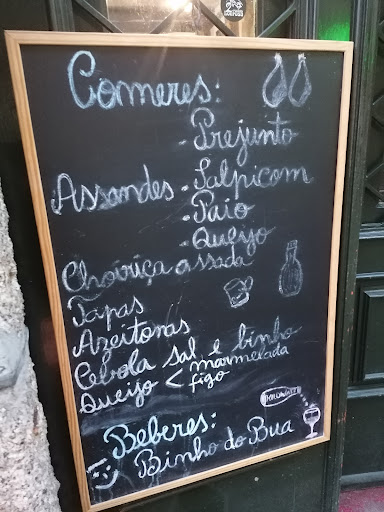 Comeres:
- Prejunto
Assandes - Salpicom
- Paio
- Queijo
Choviça assada
Tapas
Azeitonas
Cebola sal e binho
Queijo < marmelada
figo
Beberes:
Binho do Bua